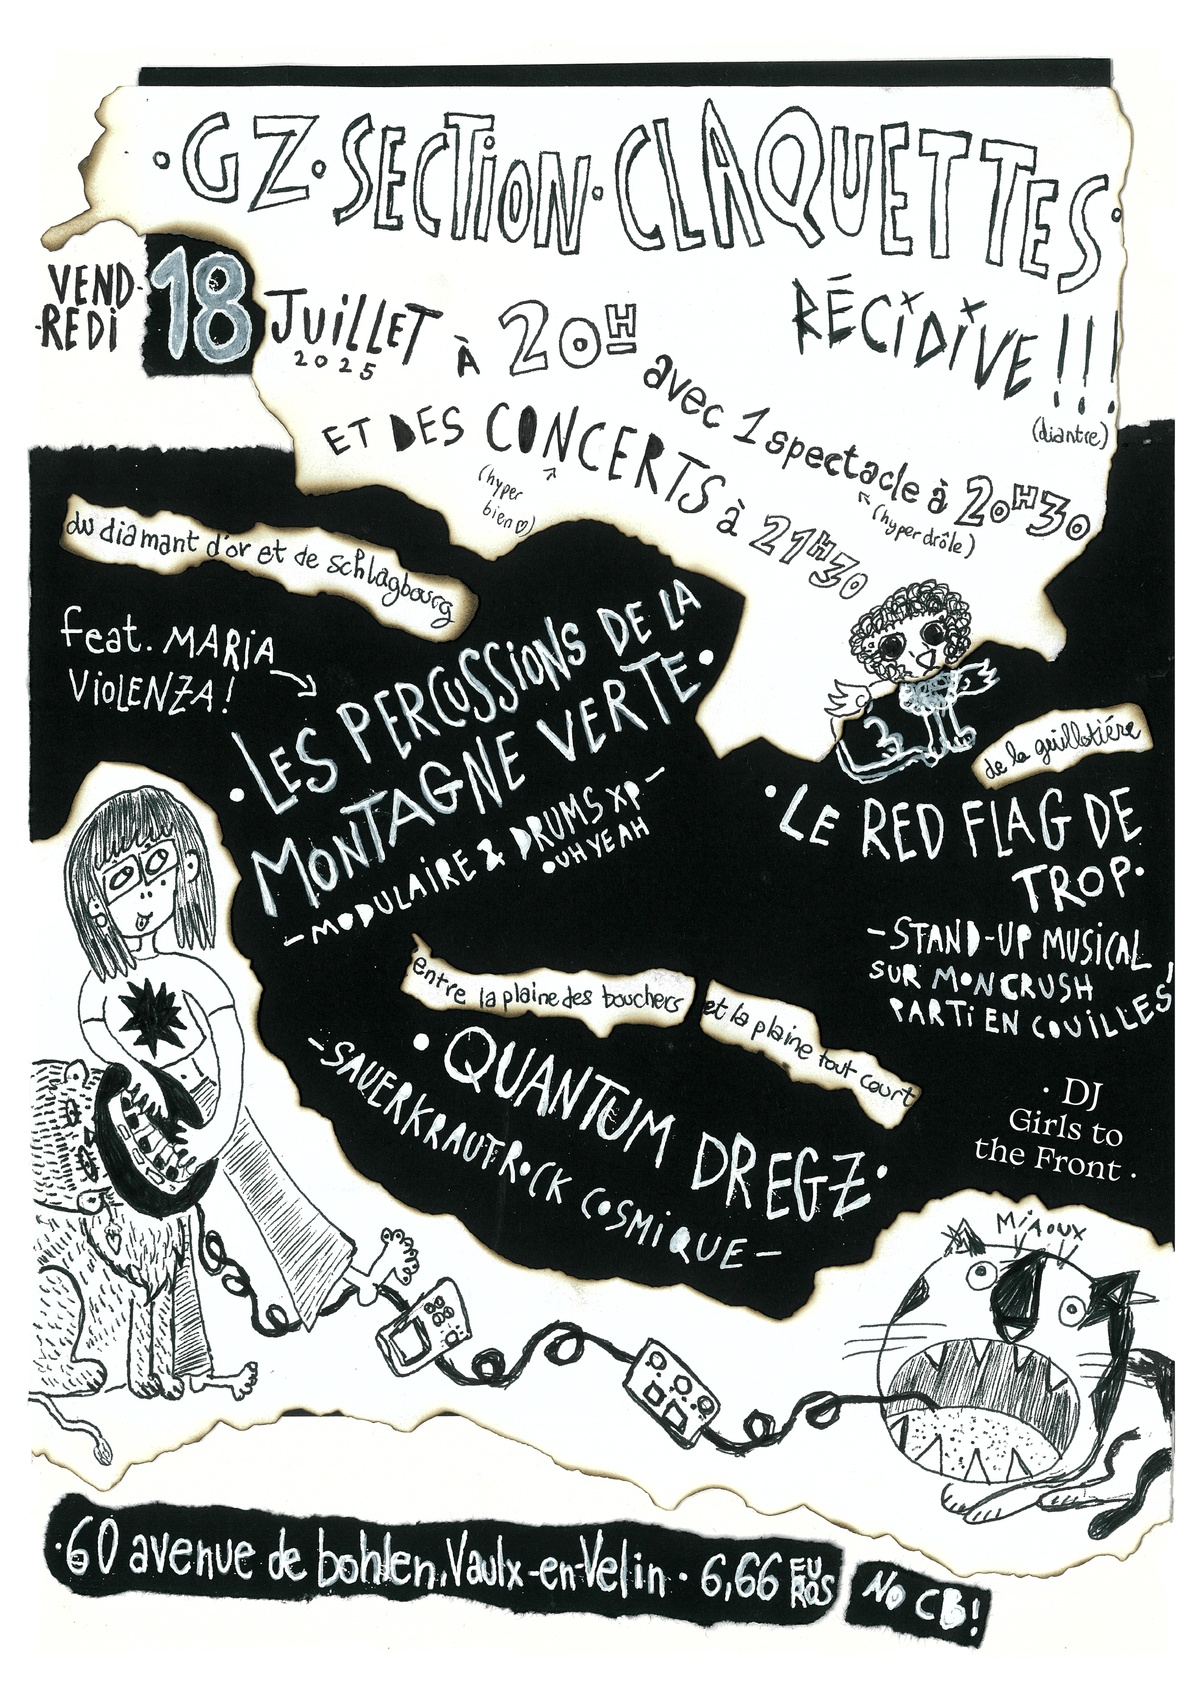 ·GZ·SECTION·CLAQUETTES·
RÉCIDIVE!!!
(diantre)
VEND-
-REDI
18
JUILLET
2025
À 20H
avec 1 spectacle à 20H30
(hyper drôle)
ET DES CONCERTS à 21H30
(hyper
bien♡)
du diamant d'or et de schlagbourg
feat. MARIA
VIOLENZA!
·LES PERCUSSIONS DE LA
MONTAGNE VERTE·
-MODULAIRE & DRUMS XP-
OUH YEAH
de la guillotière
·LE RED FLAG DE
TROP·
-STAND-UP MUSICAL
SUR MON CRUSH
PARTI EN COUILLES!
entre la plaine des bouchers et la plaine tout court
·QUANTUM DREGZ·
-SAUERKRAUTROCK COSMIQUE-
· DJ
Girls to
the Front ·
MIAOUX
·60 avenue de bohlen, Vaulx-en-Velin · 6,66 EU
ROS
NO CB!